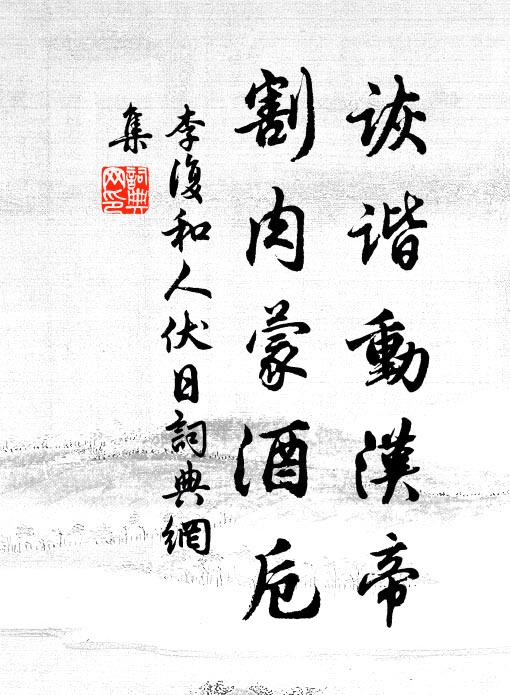 詼諧動漢帝
割肉蒙酒卮
李復和人伏日詞典網
集
詞典
網印